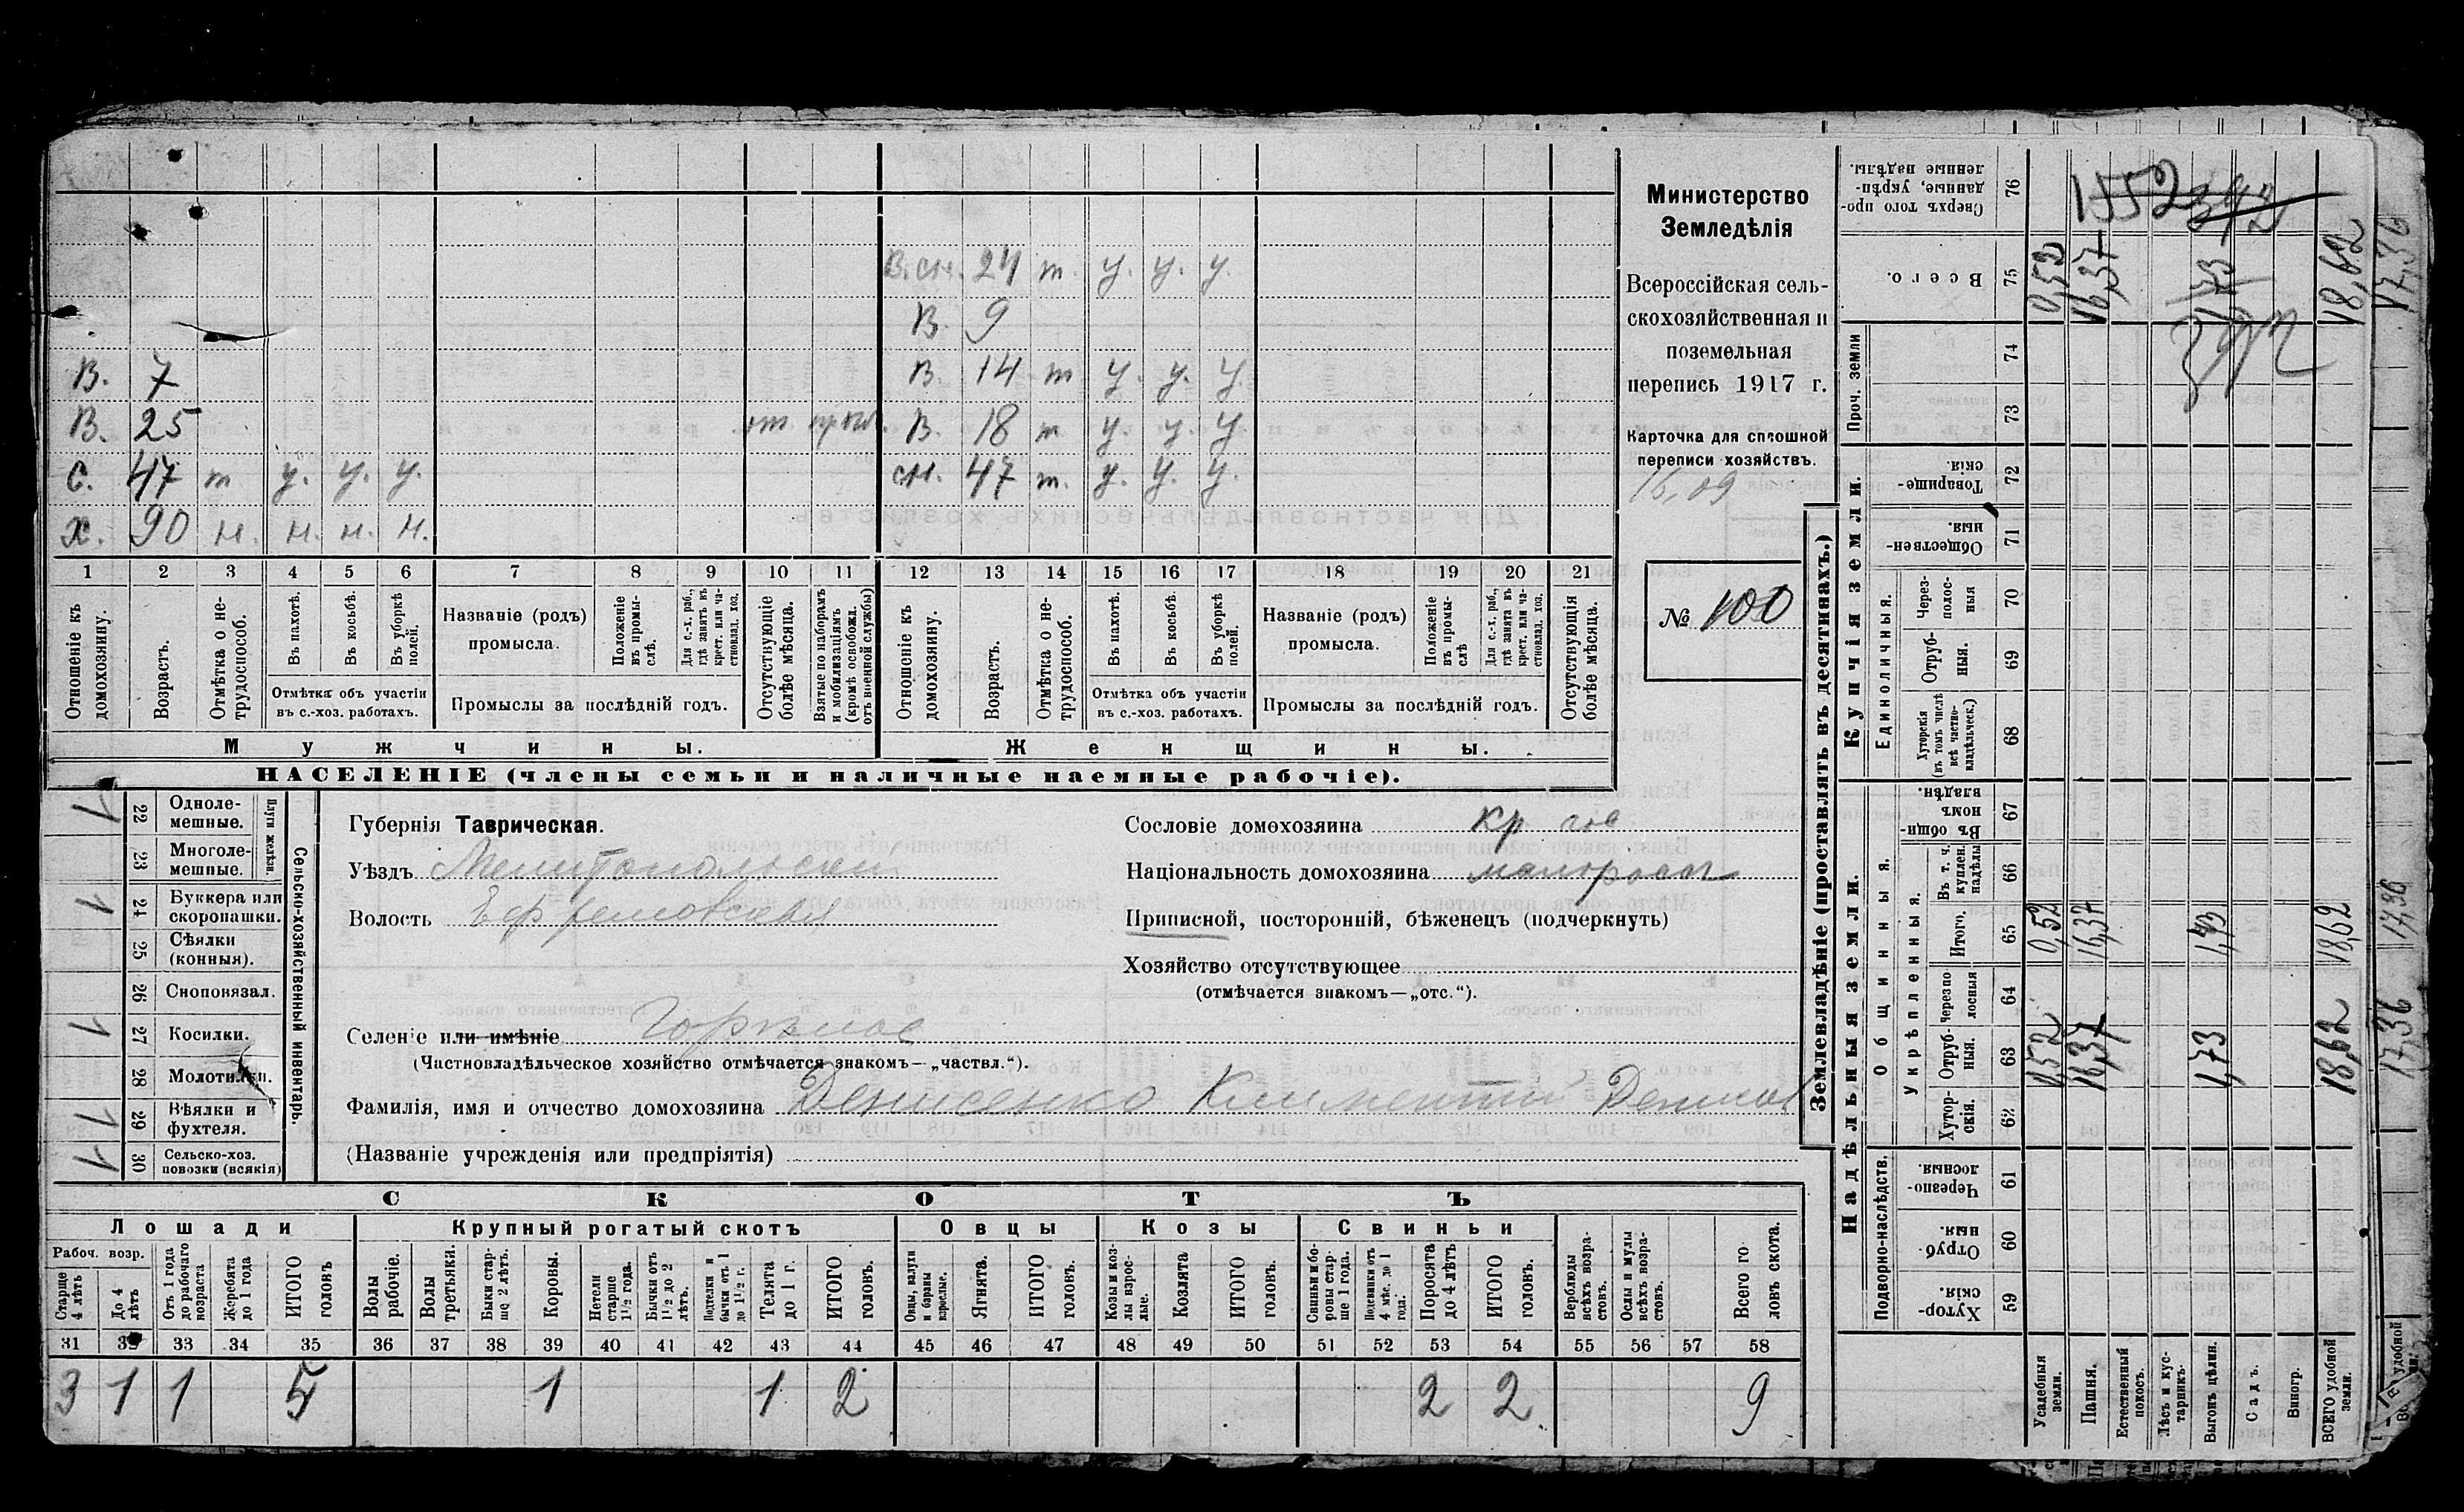 В.сн. 24 т. у. у. у.
В. 9
В. 7 В. 14 т у. у. у.
В. 25 от. В. 18 т у. у. у.
С. 47 т у. у. у. сн. 47 т. у. у. у.
х. 90 н. н. н. н.
1 2 3 4 5 6 7 8 9 10 11 12 13 14 15 16 17 18 19 20 21
Отношеніе къ домохозяину.
Возрастъ.
Отмѣтка о не-трудоспособ.
Въ пахотѣ.
Въ косьбѣ.
Въ уборкѣ полей.
Отмѣтка объ участіи
въ с.-хоз. работахъ.
Названіе (родъ)
промысла.
Положеніе въ промы-слѣ.
Для с.-х. раб., гдѣ занятъ въ крест. или ча-стновлад. хоз.
Промыслы за послѣдній годъ.
Отсутствующіе болѣе мѣсяца.
Взятые по наборамъ и мобилизаціямъ (кромѣ освобожд. отъ военной службы)
Отношеніе къ домохозяину.
Возрастъ.
Отмѣтка о не-трудоспособ.
Въ пахотѣ.
Въ косьбѣ.
Въ уборкѣ полей.
Отмѣтка объ участіи
въ с.-хоз. работахъ.
Названіе (родъ)
промысла.
Положеніе въ промы-слѣ
Для с.-х. раб., гдѣ занята въ крест. или ча-стновлад. хоз.
Промыслы за послѣдній годъ.
Отсутствующія болѣе мѣсяца.
Мужчины.
Женщины.
НАСЕЛЕНІЕ (члены семьи и наличные наемные рабочіе).
Министерство
Земледѣлія
Всероссійская сель-
скохозяйственная и
поземельная
перепись 1917 г.
Карточка для сплошной
переписи хозяйствъ.
16,09
№ 100
1 22 Одноле-мешные.
23 Многоле-мешные.
Плуги желѣзн.
1 24 Буккера или скоропашки.
25 Сѣялки (конныя).
26 Сноповязал.
1 27 Косилки.
28 Молотилки.
1 29 Вѣялки и фухтеля.
1 30 Сельско-хоз. повозки (всякія)
Сельско-хозяйственный инвентарь.
Губернія Таврическая.
Уѣздъ Мелитопольскій
Волость Ефремовская
Селеніе или имѣніе Горькое
(Частновладѣльческое хозяйство отмѣчается знакомъ—„частвл.“).
Фамилія, имя и отчество домохозяина Денисенко Климентій Денисов
(Названіе учрежденія или предпріятія)
Сословіе домохозяина
Національность домохозяина малоросс
Приписной, посторонній, бѣженец (подчеркнуть)
Хозяйство отсутствующее
(отмѣчается знакомъ—„отс.“).
СКОТЪ
Лошади
Крупный рогатый скотъ
Овцы
Козы
Свиньи
Рабоч. возр.
Старше 4 лѣтъ
До 4 лѣтъ
Отъ 1 года до рабочаго возраста
Жеребята до 1 года
ИТОГО головъ
Волы рабочіе.
Волы третьяки.
Быки стар-ше 2 лѣтъ.
Коровы.
Нетели старше 1½ года.
Бычки отъ 1½ до 2 лѣтъ.
Подтелки и бычки отъ 1 до 1½ г.
Телята до 1 г.
ИТОГО головъ.
Овцы, валухи и бараны взрослые.
Ягнята.
ИТОГО головъ.
Козы и коз-лы взрос-лые.
Козлята
ИТОГО головъ.
Свиньи и бо-ровы стар-ше 1 года.
Подсвинки отъ 4 мѣс. до 1 года.
Поросята до 4 лѣтъ
ИТОГО головъ.
Верблюды всѣхъ возра-стовъ.
Ослы и мулы всѣхъ возра-стовъ.
Всего го ловъ скота.
31 32 33 34 35 36 37 38 39 40 41 42 43 44 45 46 47 48 49 50 51 52 53 54 55 56 57 58
3 1 1 5 1 1 2 2 2 9
Землевладѣніе (проставлять въ десятинахъ.)
Купчія земли.
Надѣльныя земли.
Сверхъ того про-данные, укрѣп-ленные надѣлы. 76
Всего. 75
Проч. земли
74
73
Товарище-скія. 72
Обществен-ныя. 71
Единоличныя.
Через-полос-ныя 70
Отруб-ныя. 69
Хуторскія (въ томъ числѣ всѣ частно-владѣльческ.) 68
Общинныя.
Въ общин-номъ владѣн. 67
Укрѣпленныя.
Въ т. ч. куплен. надѣлы 66
Итого. 65
Черезпо-лосныя 64
Отруб-ныя. 63
Хутор-скія. 62
Подворно-наслѣдств.
Черезпо-лосныя. 61
Отруб-ныя. 60
Хутор-скія. 59
Усадебныя земли.
Пашня.
Естественный покосъ.
Лѣсъ и кус-тарникъ.
Выгонъ цѣлин.
Садъ.
Виногр.
ВСЕГО удобной земли.
1552 392
0,52 16,37 1,73 18,62 17,36
392
0,52 16,37 1,73 18,62
0,52 16,37 1,73 18,62 17,36